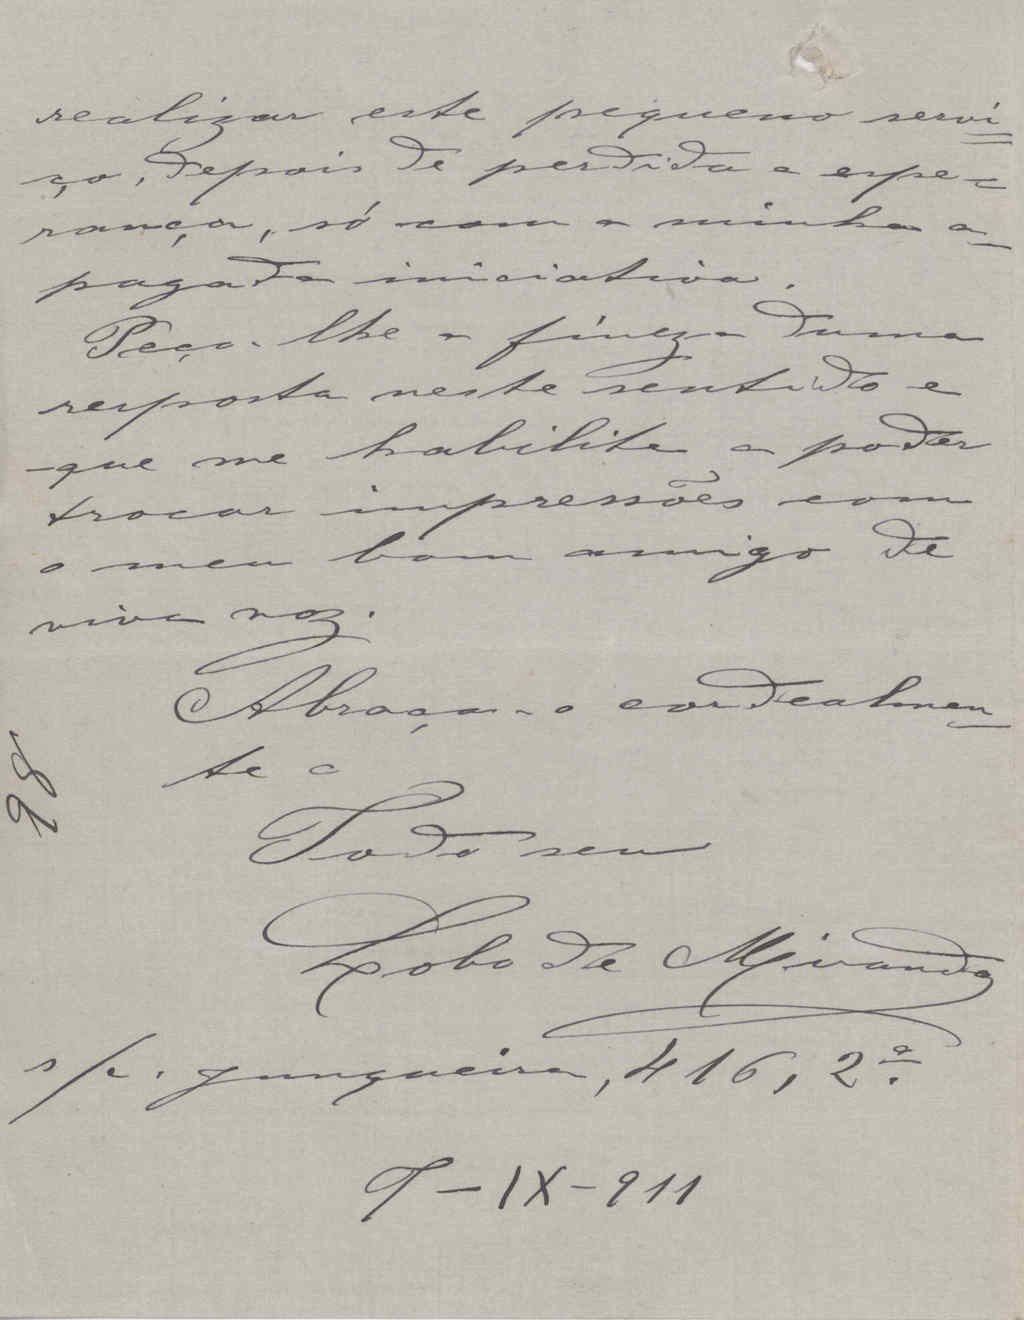 realizar este pequeno servi=
ço, depois de perdida a espe=
rança, só com a minha a-
pagada iniciativa.
Peço-lhe a fineza duma
resposta neste sentido e
que me habilite a poder
trocar impressões com
o meu bom amigo de
viva voz.
Abraça-o cordealmen-
te o
Todo seu
Lobo de Miranda
s/c. Junqueira, 416, 2º.
9-IX-911
98